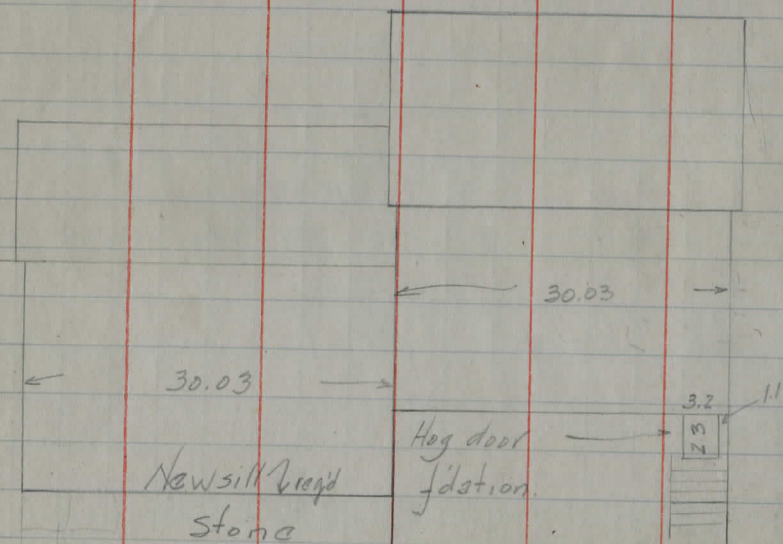 30.03
30.03
3.2
1.1
Hog door
23
f'dation.
New sill req'd
Stone